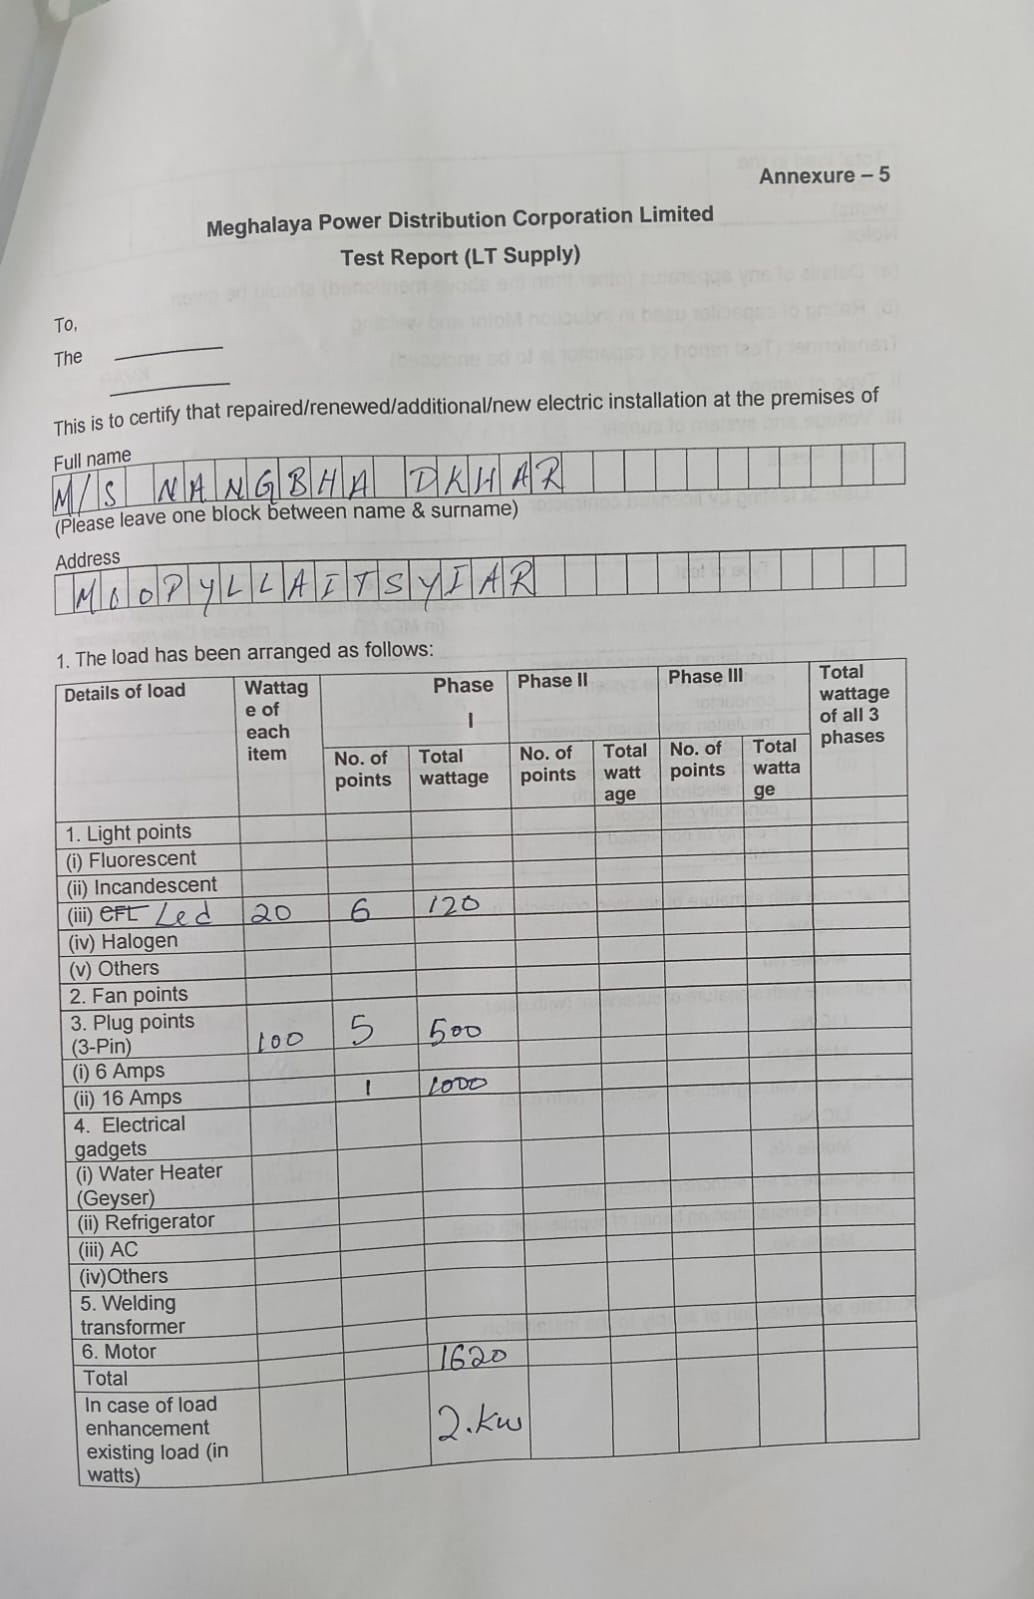 Annexure – 5
Meghalaya Power Distribution Corporation Limited
Test Report (LT Supply)
To,
The
This is to certify that repaired/renewed/additional/new electric installation at the premises of
Full name
M/S NANGBHA DKHAR
(Please leave one block between name & surname)
Address
MOOPYLLAITSYIAR
1. The load has been arranged as follows:
Details of load Wattag e of each item Phase I Phase II Phase III Total wattage of all 3 phases
No. of points Total wattage No. of points Total watt age No. of points Total watta ge
1. Light points
(i) Fluorescent
(ii) Incandescent
(iii) CFL Led 20 6 120
(iv) Halogen
(v) Others
2. Fan points
3. Plug points
(3-Pin) 100 5 500
(i) 6 Amps
(ii) 16 Amps 1 1000
4. Electrical
gadgets
(i) Water Heater
(Geyser)
(ii) Refrigerator
(iii) AC
(iv)Others
5. Welding
transformer
6. Motor
Total 1620
In case of load
enhancement
existing load (in
watts) 2.kw